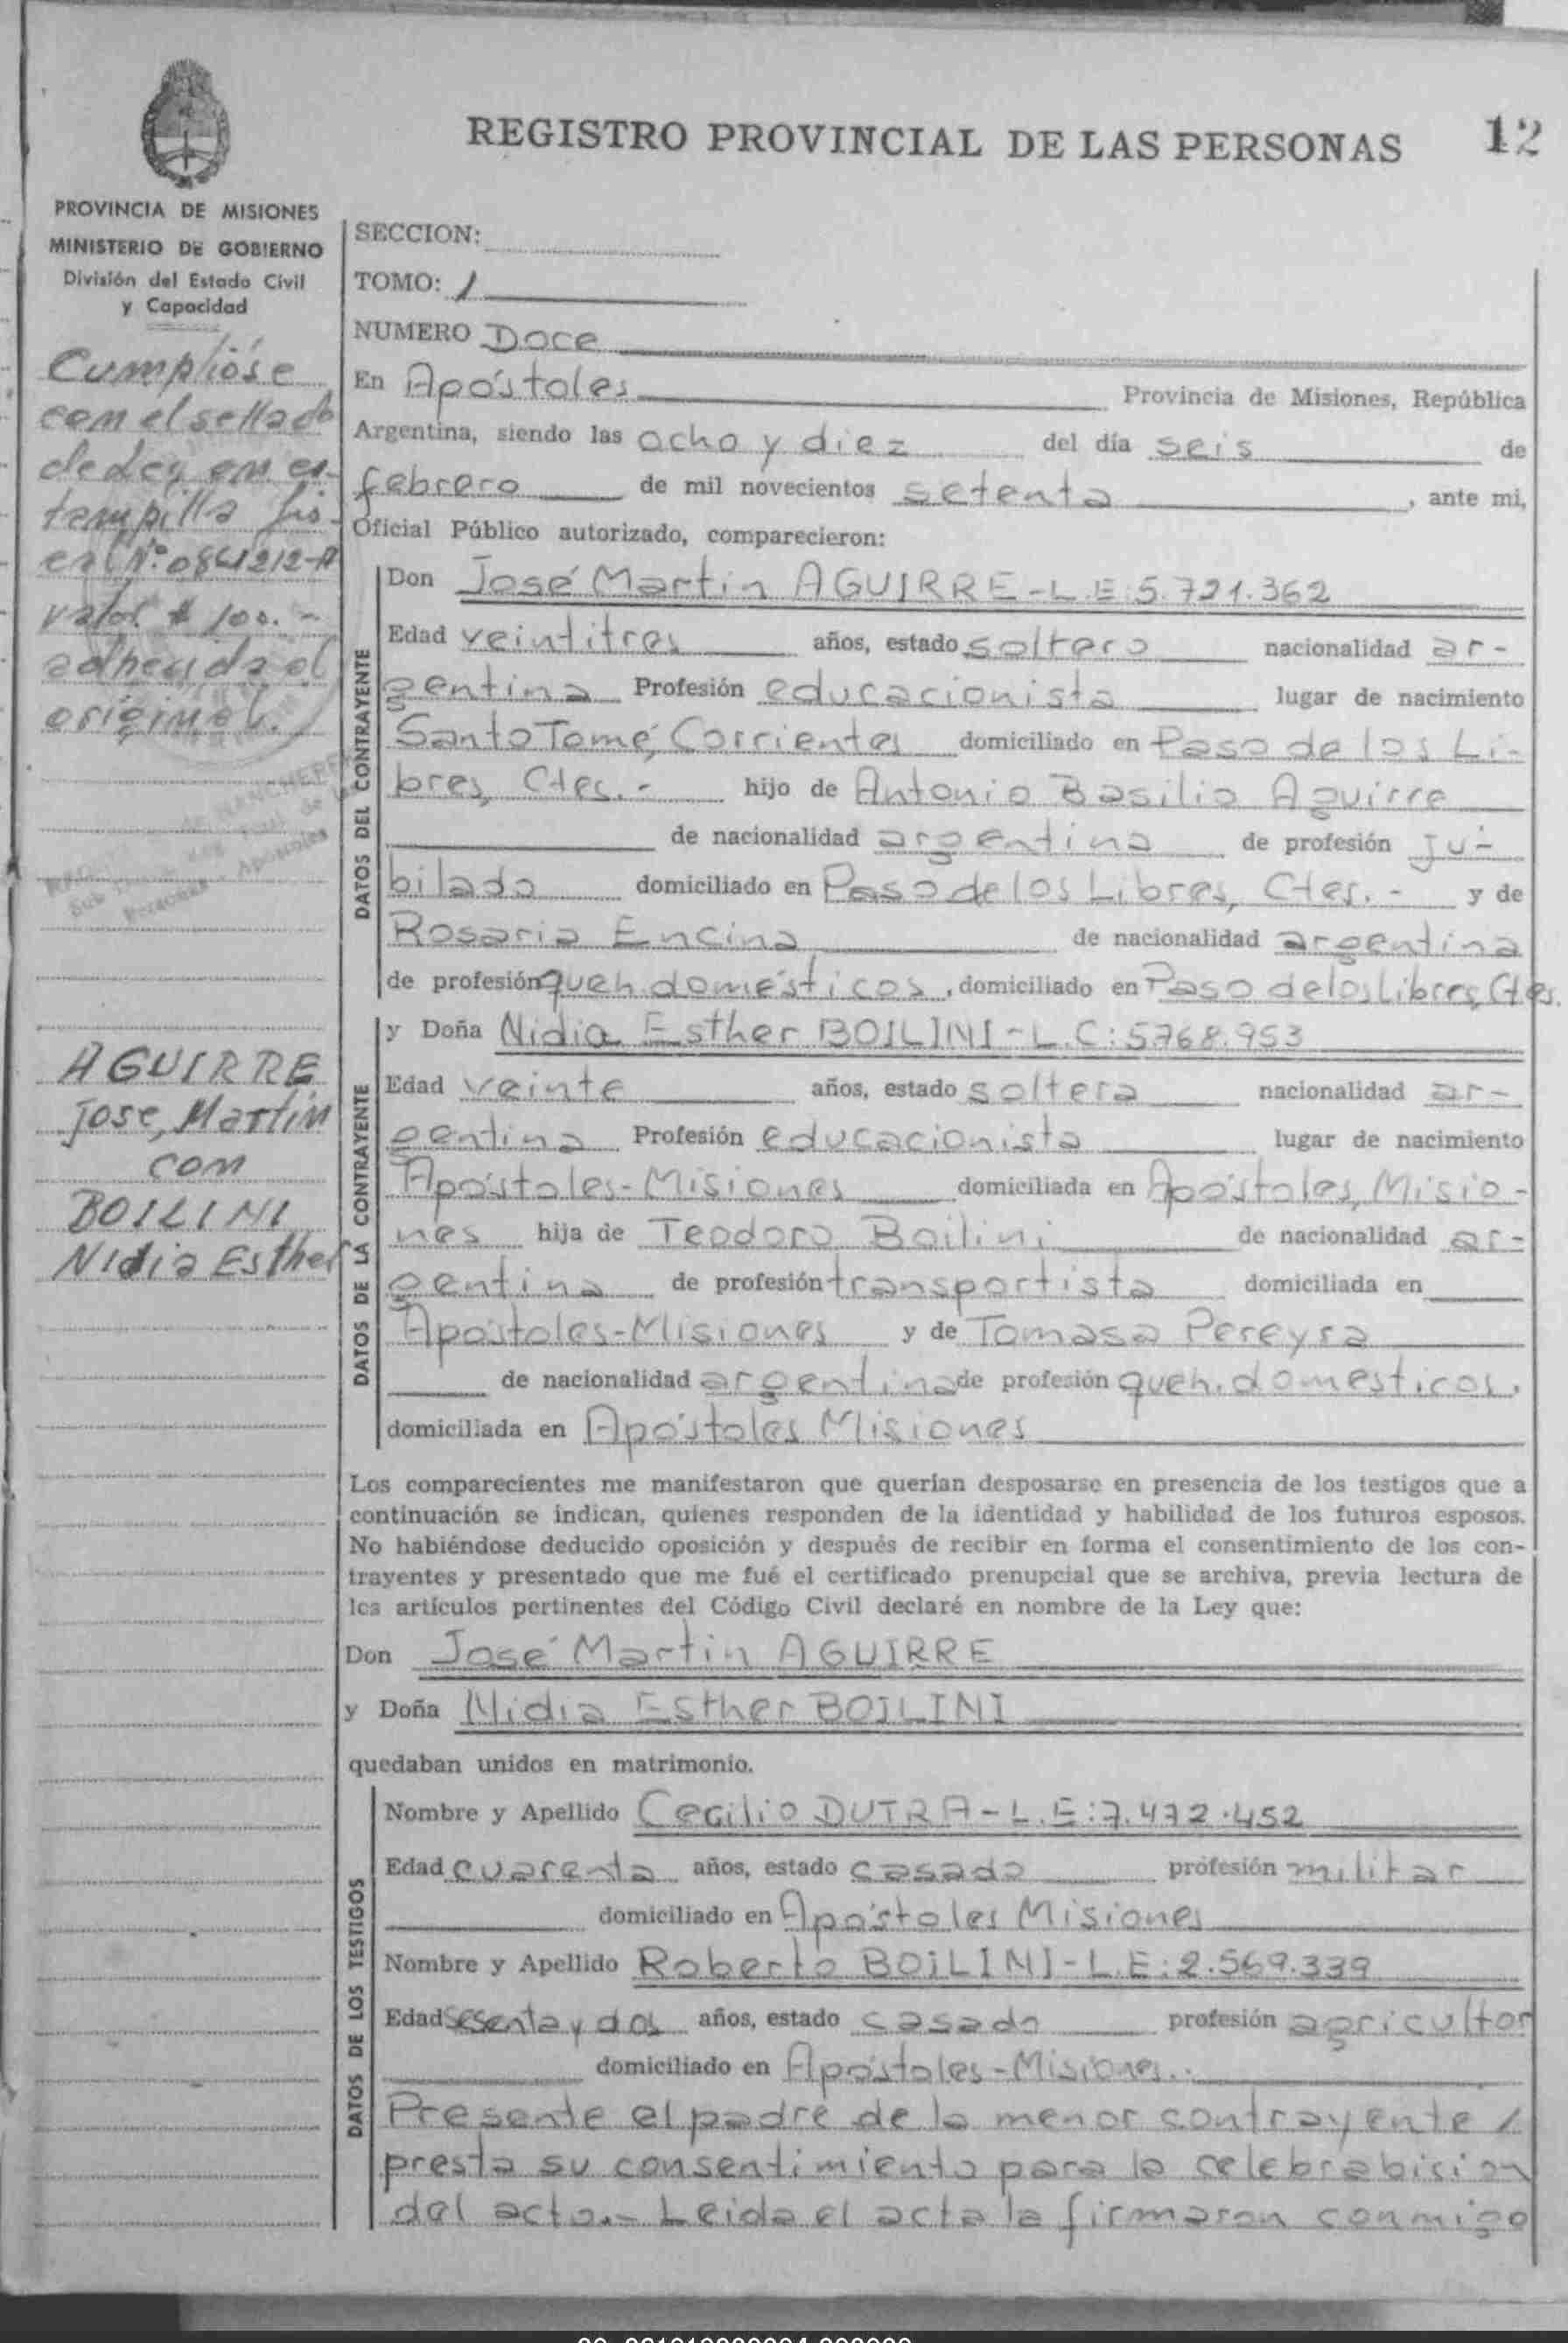 REGISTRO PROVINCIAL DE LAS PERSONAS 12
PROVINCIA DE MISIONES
MINISTERIO DE GOBIERNO
División del Estado Civil
y Capacidad
Cumplióse
con el sellado
de Ley en es-
tampilla fis-
cal Nº 084212-A
valor $ 100.-
adherida al
original.
Personas - Apóstoles
AGUIRRE
Jose, Martin
con
BOILINI
Nidia Esther
SECCION:
TOMO: 1
NUMERO Doce
En Apóstoles Provincia de Misiones, República
Argentina, siendo las ocho y diez del día seis de
febrero de mil novecientos setenta, ante mi,
Oficial Público autorizado, comparecieron:
DATOS DEL CONTRAYENTE
Don José Martin AGUIRRE-L.E:5.721.362
Edad veintitres años, estado soltero nacionalidad ar-
gentina Profesión educacionista lugar de nacimiento
Santo Tomé, Corrientes domiciliado en Paso de los Li-
bres, Ctes.- hijo de Antonio Basilio Aguirre
de nacionalidad argentina de profesión ju-
bilado domiciliado en Paso de los Libres, Ctes.- y de
Rosaria Encina de nacionalidad argentina
de profesión queh. domésticos, domiciliado en Paso de los Libres, Ctes.
DATOS DE LA CONTRAYENTE
y Doña Nidia Esther BOILINI-L.C:5768.953
Edad veinte años, estado soltera nacionalidad ar-
gentina Profesión educacionista lugar de nacimiento
Apóstoles-Misiones domiciliada en Apóstoles, Misio-
nes hija de Teodoro Boilini de nacionalidad ar-
gentina de profesión transportista domiciliada en
Apóstoles-Misiones y de Tomasa Pereyra
de nacionalidad argentina de profesión queh. domesticos.
domiciliada en Apóstoles Misiones
Los comparecientes me manifestaron que querían desposarse en presencia de los testigos que a
continuación se indican, quienes responden de la identidad y habilidad de los futuros esposos.
No habiéndose deducido oposición y después de recibir en forma el consentimiento de los con-
trayentes y presentado que me fué el certificado prenupcial que se archiva, previa lectura de
los artículos pertinentes del Código Civil declaré en nombre de la Ley que:
Don José Martin AGUIRRE
y Doña Nidia Esther BOILINI
quedaban unidos en matrimonio.
DATOS DE LOS TESTIGOS
Nombre y Apellido Cecilio DUTRA-L.E:7.472.452
Edad cuarenta años, estado casado profesión militar
domiciliado en Apóstoles Misiones
Nombre y Apellido Roberto BOiLINI-L.E:2.569.339
Edad sesenta y dos años, estado casado profesión agricultor
domiciliado en Apóstoles-Misiones.
Presente el padre de la menor contrayente /
presta su consentimiento para la celebrabicion
del acto.- Leida el acta la firmaron conmigo